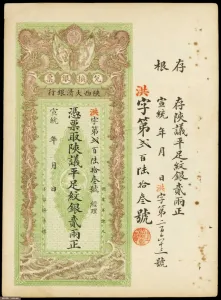 存根
存陝議平足紋銀貳兩正
宣統 年 月 日洪字第二百六十三號
洪字第貳百陸拾叁號
陝西大清銀行
洪字第貳百陸拾叁號 經理
憑票取陝議平足紋銀貳兩正
宣統 年 月 日